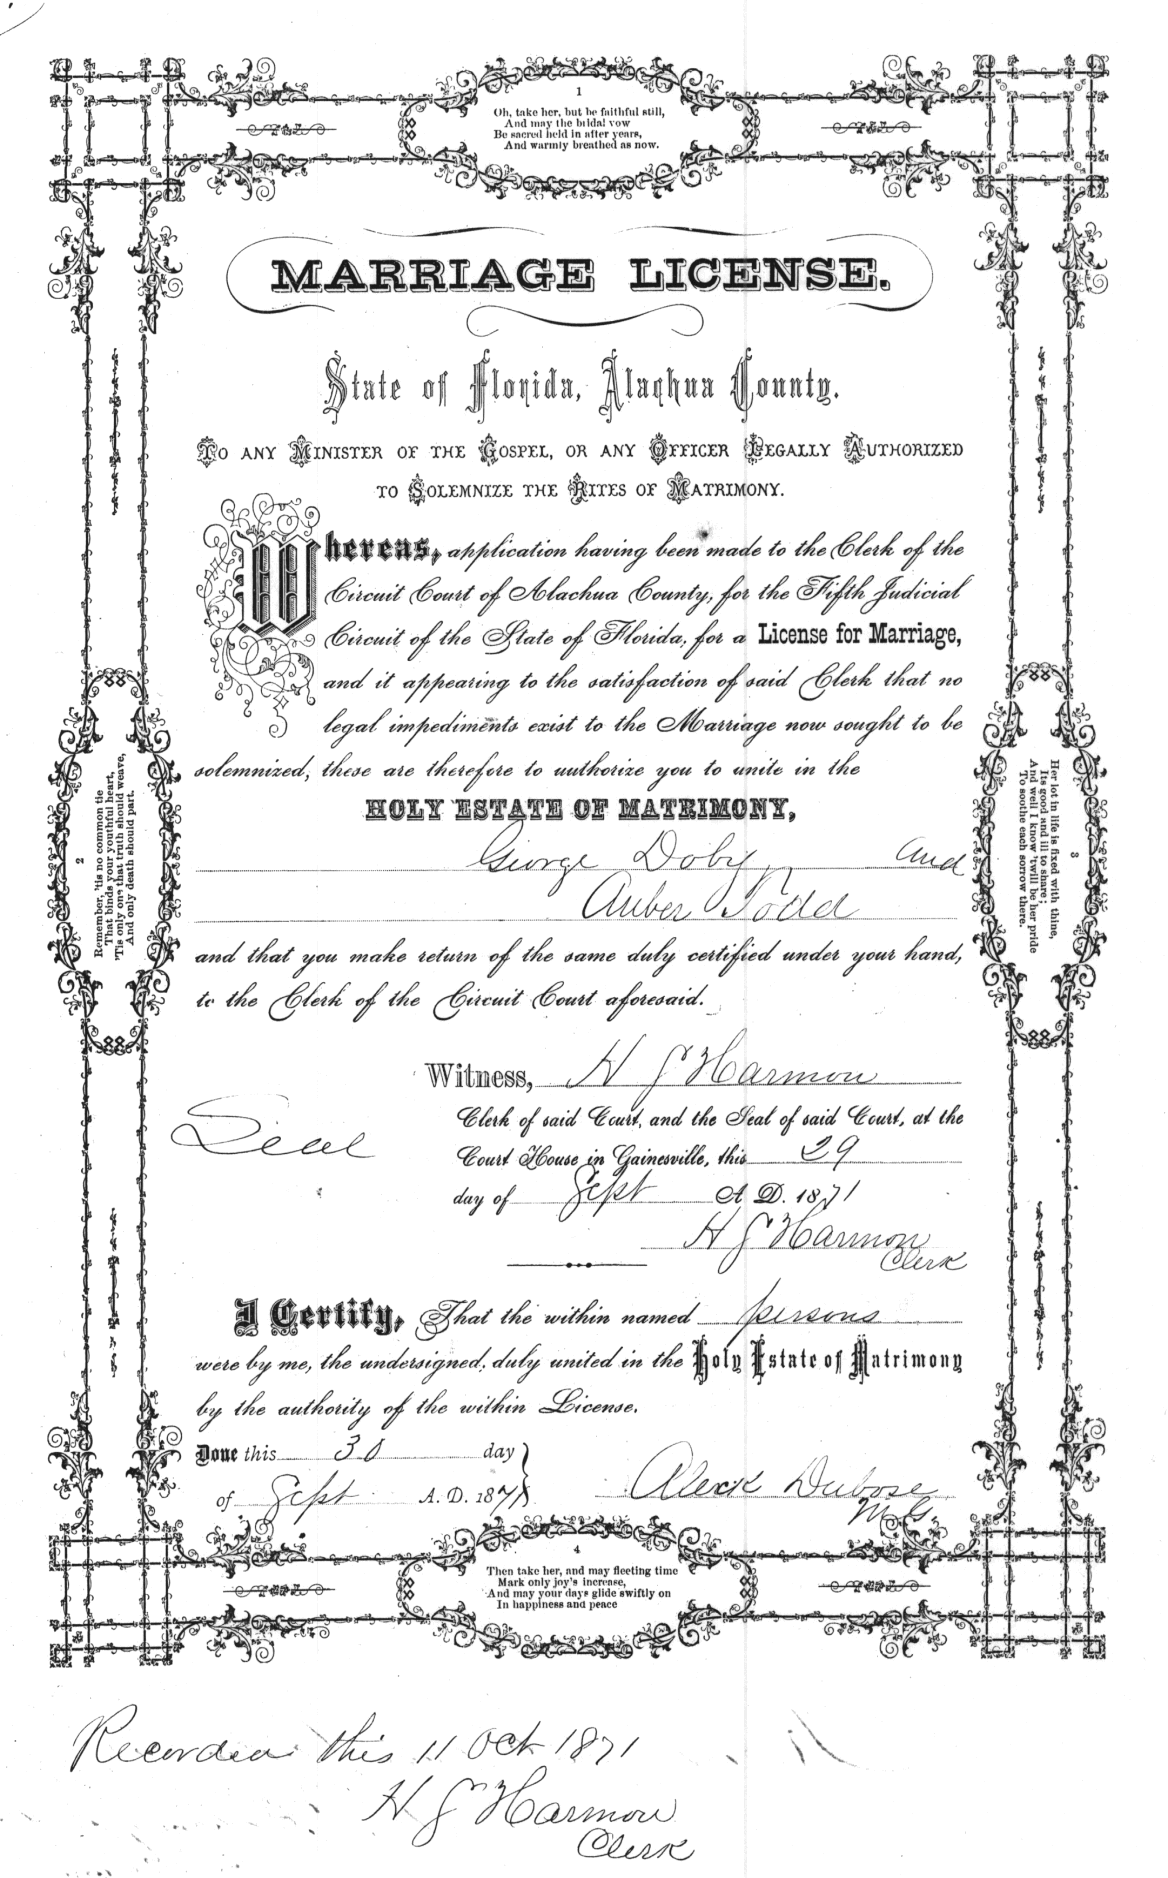 1
Oh, take her, but be faithful still,
And may the bridal vow
Be sacred held in after years,
And warmly breathed as now.
MARRIAGE LICENSE.
State of Florida, Alachua County.
TO ANY MINISTER OF THE GOSPEL, OR ANY OFFICER LEGALLY AUTHORIZED
TO SOLEMNIZE THE RITES OF MATRIMONY.
Whereas, application having been made to the Clerk of the
Circuit Court of Alachua County, for the Fifth Judicial
Circuit of the State of Florida, for a License for Marriage,
and it appearing to the satisfaction of said Clerk that no
legal impediments exist to the Marriage now sought to be
solemnized, these are therefore to authorize you to unite in the
HOLY ESTATE OF MATRIMONY,
George Doby, and
Auber Todd
and that you make return of the same duly certified under your hand,
to the Clerk of the Circuit Court aforesaid.
Witness, H J Harmon
Clerk of said Court, and the Seal of said Court, at the
Seal
Court House in Gainesville, this 29
day of Sept A D. 1871
H J Harmon
Clerk
I Certify, That the within named persons
were by me, the undersigned, duly united in the Holy Estate of Matrimony
by the authority of the within License.
Done this 30 day
of Sept A. D. 1871
Aleck Dubose
M G
2
Remember, 'tis no common tie
That binds your youthful heart,
'Tis only one that truth should weave,
And only death should part.
3
Her lot in life is fixed with thine,
Its good and ill to share;
And well I know 'twill be her pride
To soothe each sorrow there.
4
Then take her, and may fleeting time
Mark only joy's increase,
And may your days glide swiftly on
In happiness and peace
Recorded this 11 Oct 1871
H J Harmon
Clerk